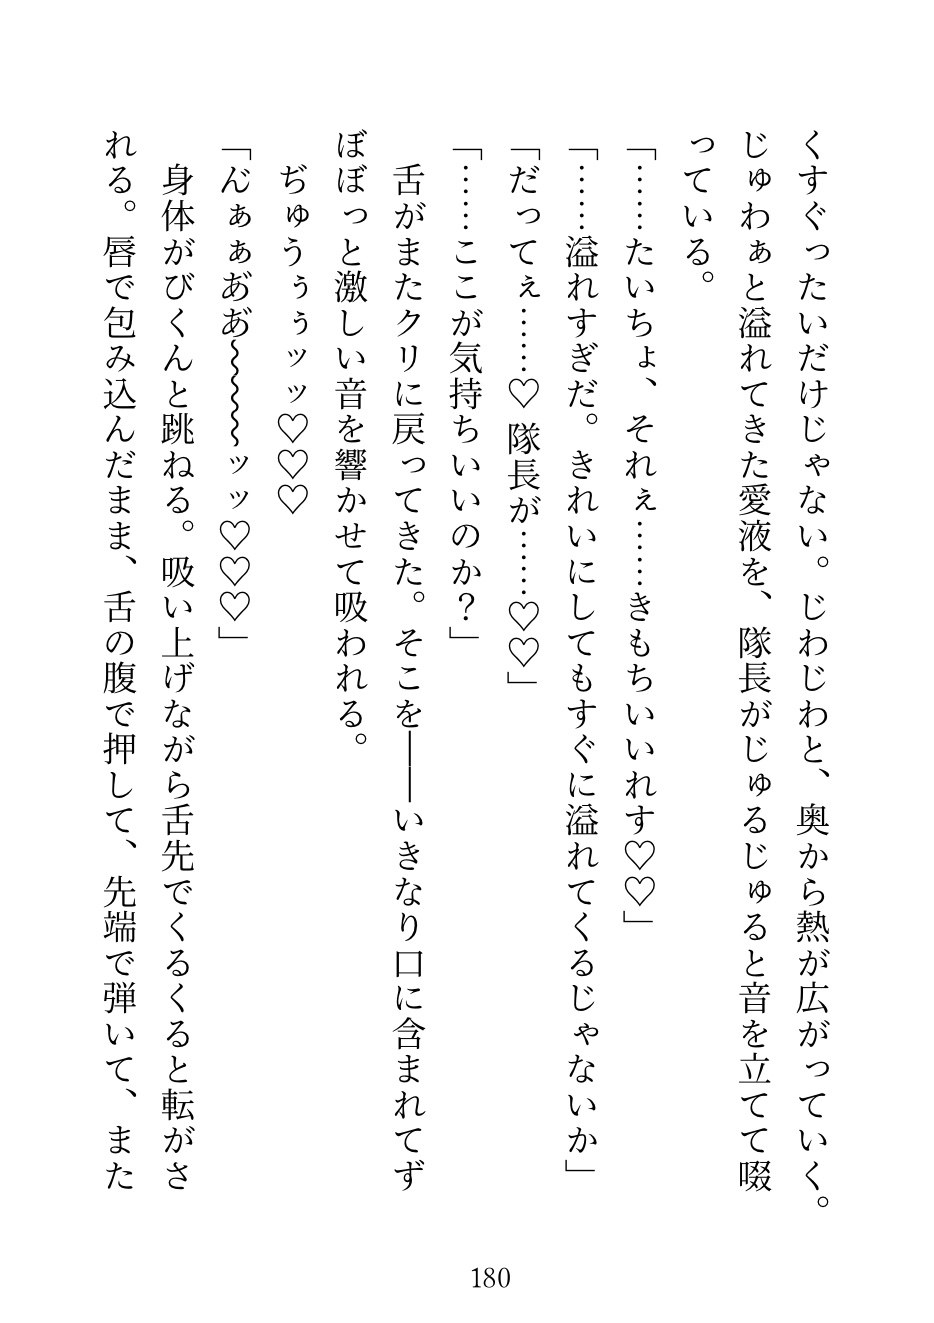 くすぐったいだけじゃない。じわじわと、奥から熱が広がっていく。
じゅわぁと溢れてきた愛液を、隊長がじゅるじゅると音を立てて啜
っている。
「……たいちょ、それぇ……きもちいいれす♡♡」
「……溢れすぎだ。きれいにしてもすぐに溢れてくるじゃないか」
「だってぇ……♡ 隊長が……♡♡」
「……ここが気持ちいいのか？」
　舌がまたクリに戻ってきた。そこを――いきなり口に含まれてず
ぼぼっと激しい音を響かせて吸われる。
　ぢゅうぅぅッッ♡♡♡
「ん゛ぁぁあ゛あ゛〜〜〜〜ッッ♡♡♡」
　身体がびくんと跳ねる。吸い上げながら舌先でくるくると転がさ
れる。唇で包み込んだまま、舌の腹で押して、先端で弾いて、また
180